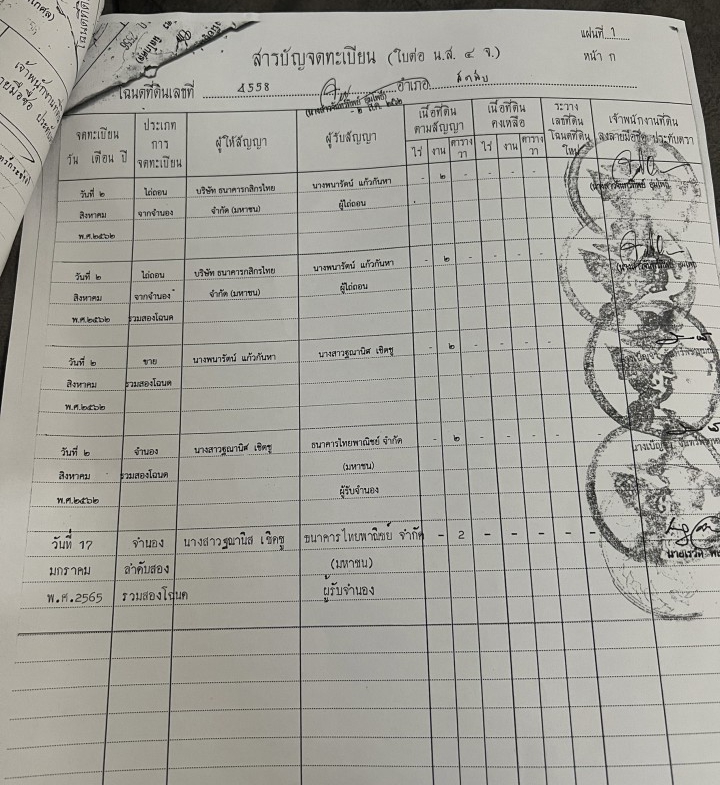 แผ่นที่ 1
สารบัญจดทะเบียน (ใบต่อ น.ส. ๔ จ.)
หน้า ก
โฉนดที่ดินเลขที่ 4558 อำเภอ
จดทะเบียน วัน เดือน ปี
ประเภท การ จดทะเบียน
ผู้ให้สัญญา
ผู้รับสัญญา
เนื้อที่ดิน ตามสัญญา
ไร่ งาน ตารางวา
เนื้อที่ดิน คงเหลือ
ไร่ งาน ตารางวา
ระวาง เลขที่ดิน โฉนดที่ดิน ใหม่
เจ้าพนักงานที่ดิน ลงลายมือชื่อ ประทับตรา
วันที่ ๒ ไถ่ถอน บริษัท ธนาคารกสิกรไทย นางพนารัตน์ แก้วกันหา - ๒ - - - - -
สิงหาคม จากจำนอง จำกัด (มหาชน) ผู้ไถ่ถอน
พ.ศ.๒๕๖๒
วันที่ ๒ ไถ่ถอน บริษัท ธนาคารกสิกรไทย นางพนารัตน์ แก้วกันหา - ๒ - - - - -
สิงหาคม จากจำนอง จำกัด (มหาชน) ผู้ไถ่ถอน
พ.ศ.๒๕๖๒ รวมสองโฉนด
วันที่ ๒ ขาย นางพนารัตน์ แก้วกันหา นางสาวฐณานิศ เชิดชู - ๒ - - - - -
สิงหาคม รวมสองโฉนด
พ.ศ.๒๕๖๒
วันที่ ๒ จำนอง นางสาวฐณานิศ เชิดชู ธนาคารไทยพาณิชย์ จำกัด - ๒ - - - - -
สิงหาคม รวมสองโฉนด (มหาชน)
พ.ศ.๒๕๖๒ ผู้รับจำนอง
วันที่ 17 จำนอง นางสาวฐณานิส เชิดชู ธนาคารไทยพาณิชย์ จำกัด - 2 - - - - -
มกราคม ลำดับสอง (มหาชน)
พ.ศ.2565 รวมสองโฉนด ผู้รับจำนอง